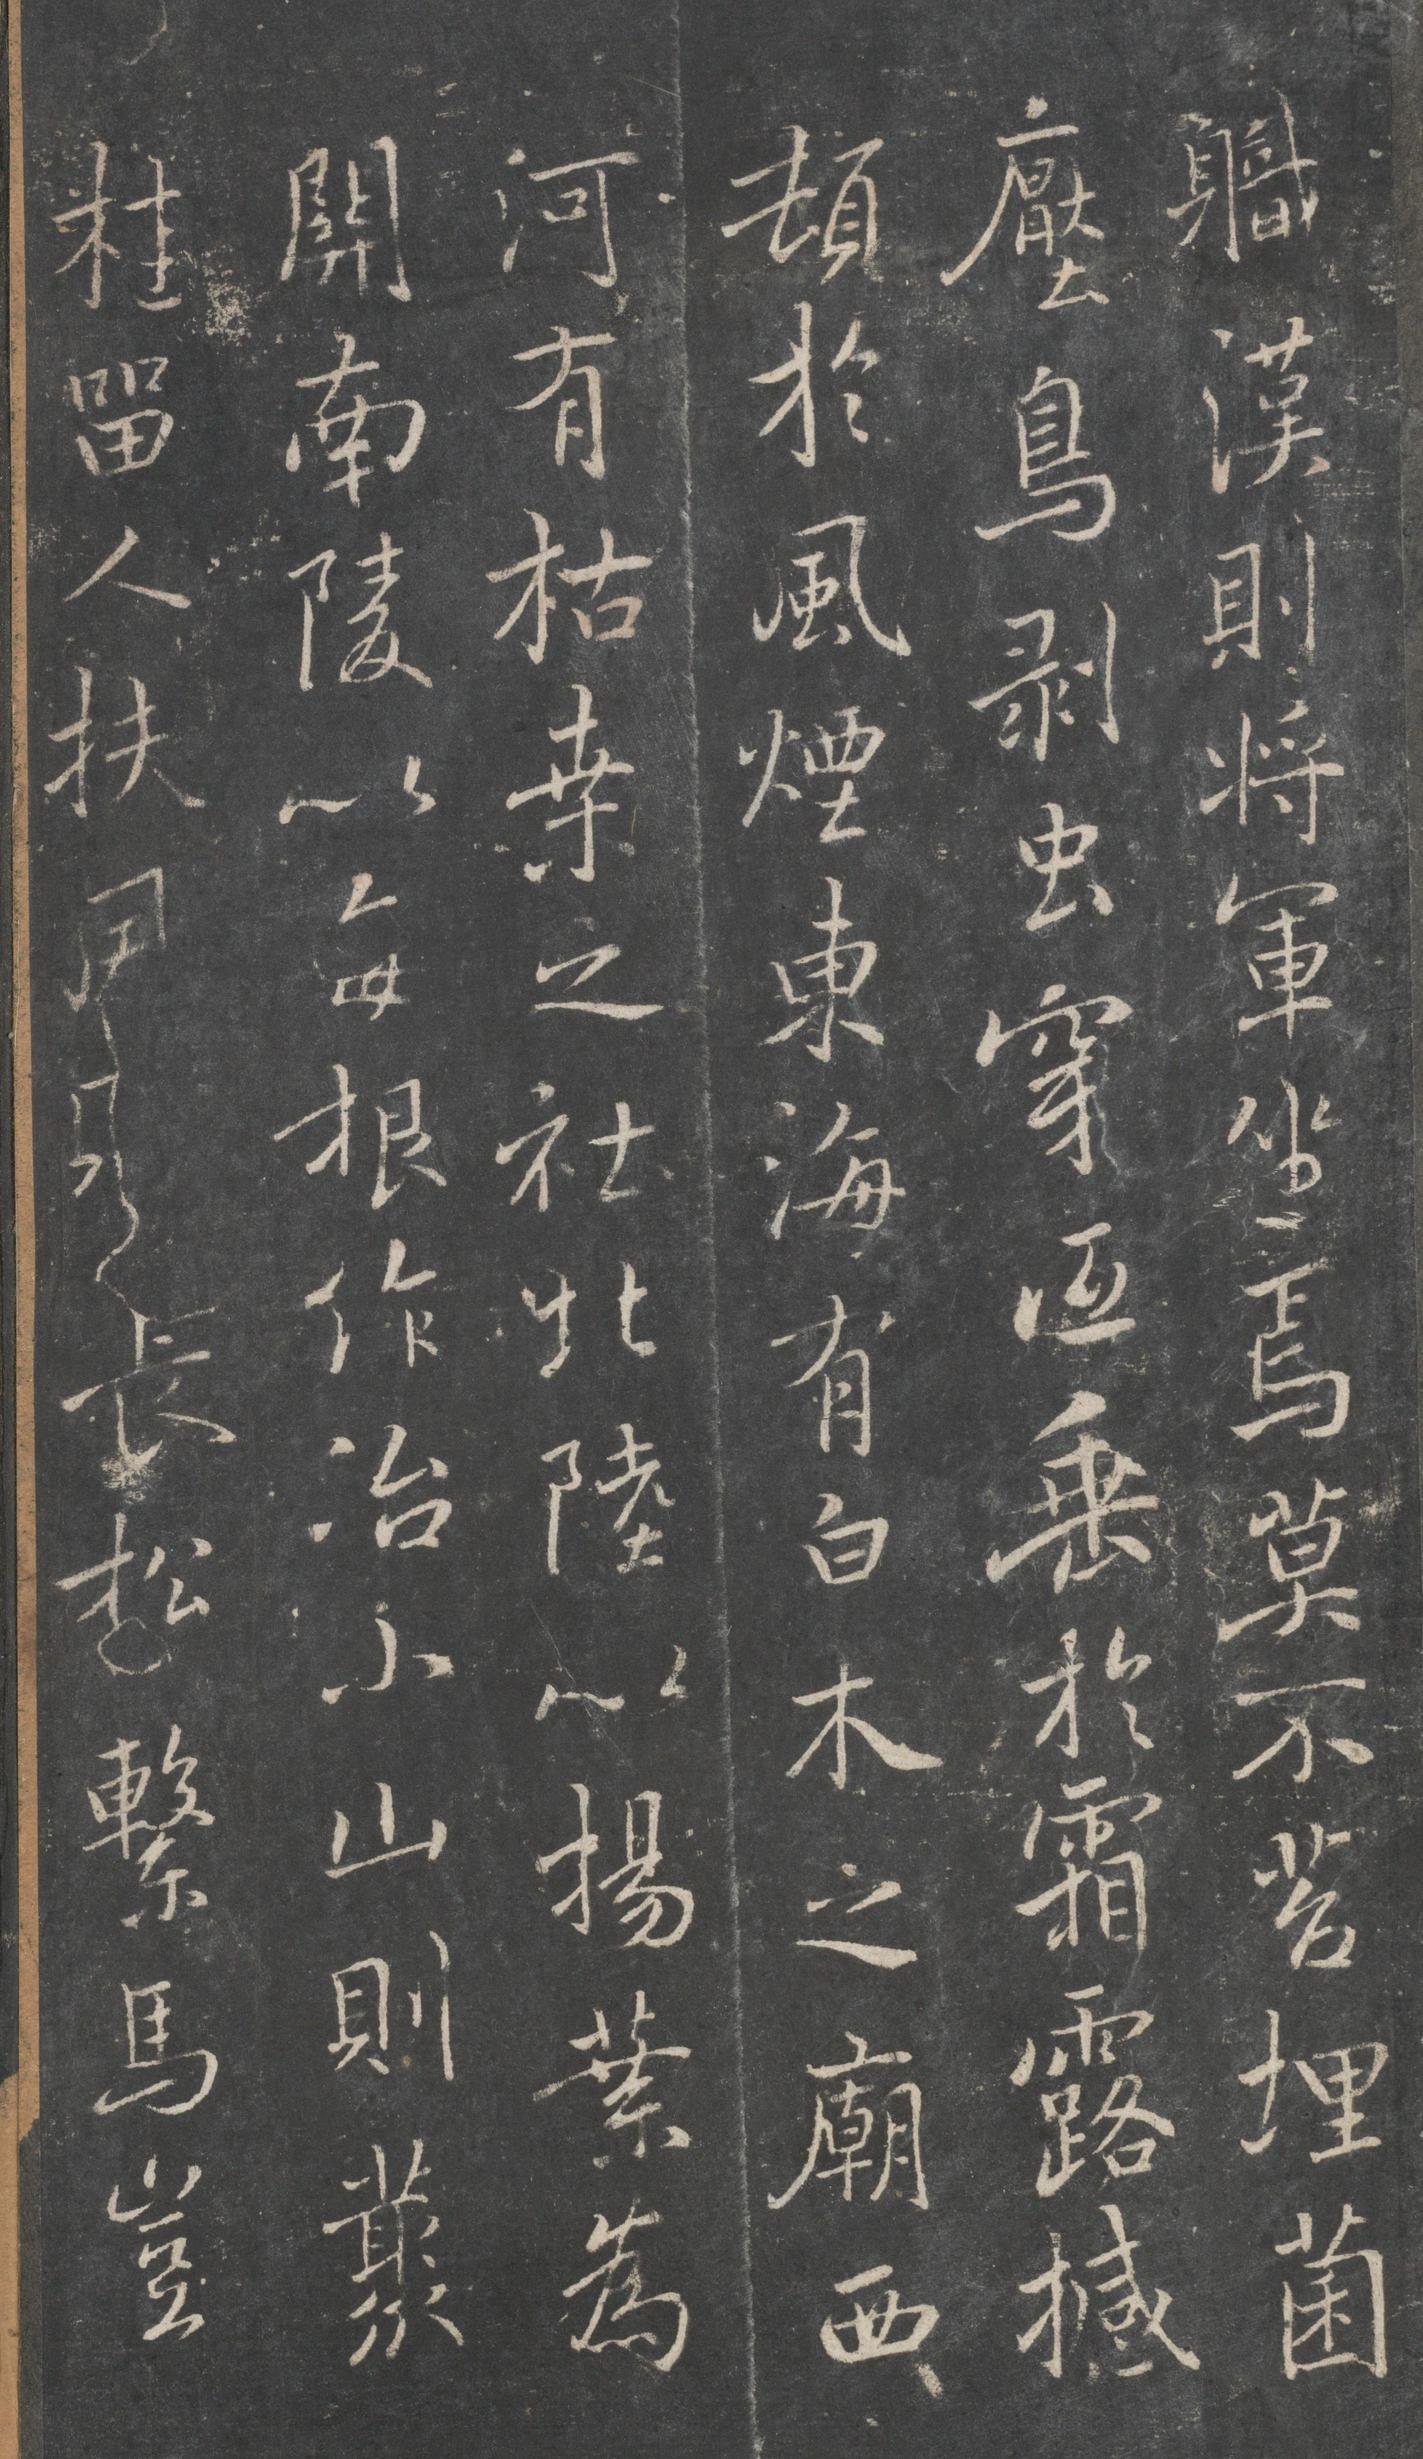 軄漢則将軍坐焉莫不苔埋菌
壓鳥剥虫穿垂於霜露撼
頓於風煙東海有白木之廟西
河有枯桒之社北陸以楊葉為
關南陵以每根作冶小山則叢
桂留人扶長松繫馬豈